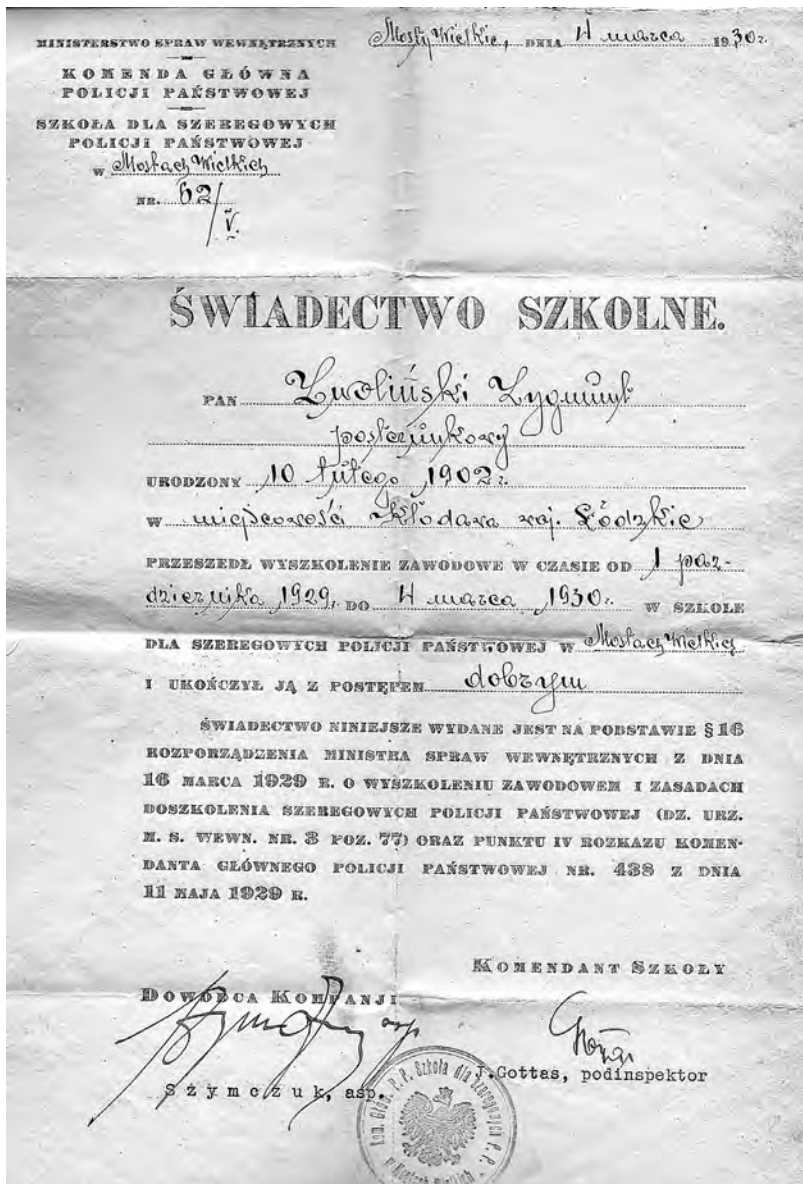 MINISTERSTWO SPRAW WEWNĘTRZNYCH
Mosty Wielkie, DNIA 4 marca 1930 r.
KOMENDA GŁÓWNA
POLICJI PAŃSTWOWEJ
SZKOŁA DLA SZEREGOWYCH
POLICJI PAŃSTWOWEJ
w Mostach Wielkich
NR. 62/V.
ŚWIADECTWO SZKOLNE.
PAN Zwoliński Zygmunt
posterunkowy
URODZONY 10 lutego 1902 r.
W miejscowości Kłodawa woj. Łódzkie
PRZESZEDŁ WYSZKOLENIE ZAWODOWE W CZASIE OD 1 paź-
dziernika 1929 r. DO 4 marca 1930 r. W SZKOLE
DLA SZEREGOWYCH POLICJI PAŃSTWOWEJ W Mostach Wielkich
I UKOŃCZYŁ JĄ Z POSTĘPEM dobrym
ŚWIADECTWO NINIEJSZE WYDANE JEST NA PODSTAWIE § 16
ROZPORZĄDZENIA MINISTRA SPRAW WEWNĘTRZNYCH Z DNIA
16 MARCA 1929 R. O WYSZKOLENIU ZAWODOWEM I ZASADACH
DOSZKOLENIA SZEREGOWYCH POLICJI PAŃSTWOWEJ (DZ. URZ.
M. S. WEWN. NR. 3 POZ. 77) ORAZ PUNKTU IV ROZKAZU KOMEN-
DANTA GŁÓWNEGO POLICJI PAŃSTWOWEJ NR. 438 Z DNIA
11 MAJA 1929 R.
KOMENDANT SZKOŁY
DOWÓDCA KOMPANJI
J.Gottas, podinspektor
Szymczuk, asp.
Kom. Głów. P. P. Szkoła dla Szeregowych P. P.
w Mostach Wielkich